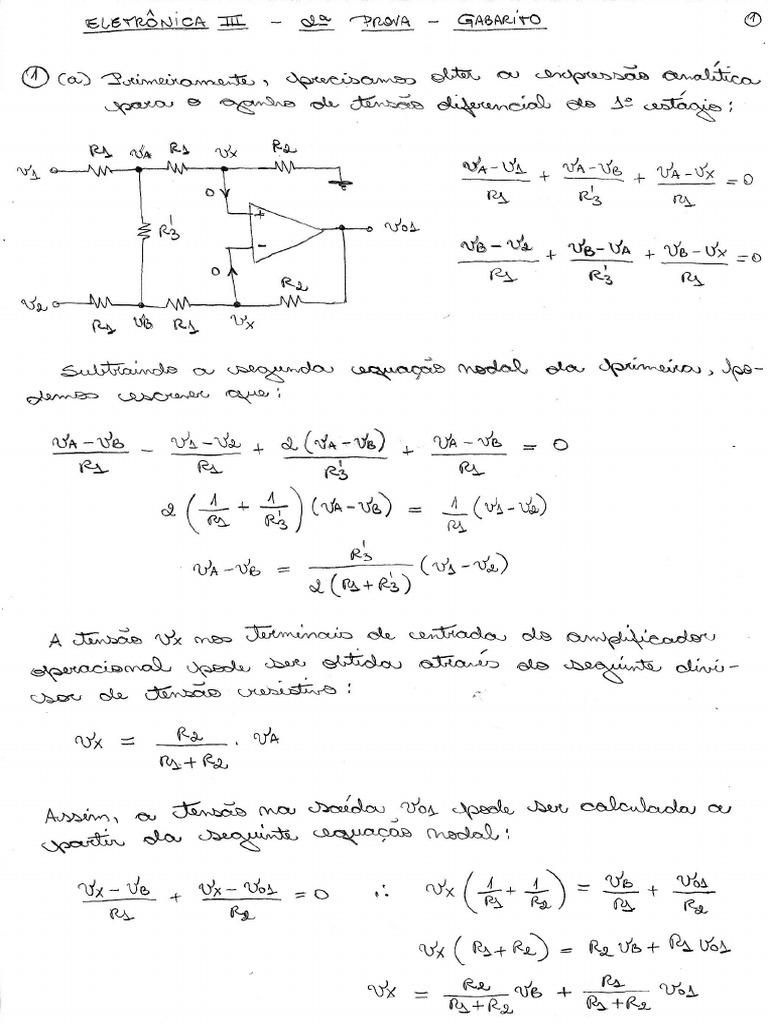 ELETRÔNICA III - 2ª PROVA - GABARITO
1
1 (a) Primeiramente, precisamos obter a expressão analítica
para o ganho de tensão diferencial do 1º estágio:
R1 vA R1 vX R2
v1
0
+
R3'
v01
-
0
R2
v2
R1 vB R1 vX
(vA - v1)/R1 + (vA - vB)/R3' + (vA - vX)/R1 = 0
(vB - v2)/R1 + (vB - vA)/R3' + (vB - vX)/R1 = 0
Subtraindo a segunda equação nodal da primeira, po-
demos escrever que:
(vA - vB)/R1 - (v1 - v2)/R1 + 2(vA - vB)/R3' + (vA - vB)/R1 = 0
2(1/R1 + 1/R3')(vA - vB) = 1/R1 (v1 - v2)
vA - vB = R3'/(2(R1 + R3')) (v1 - v2)
A tensão vX nos terminais de entrada do amplificador
operacional pode ser obtida através do seguinte divi-
sor de tensão resistivo:
vX = R2/(R1 + R2) . vA
Assim, a tensão na saída v01 pode ser calculada a
partir da seguinte equação nodal:
(vX - vB)/R1 + (vX - v01)/R2 = 0 ∴ vX(1/R1 + 1/R2) = vB/R1 + v01/R2
vX(R1 + R2) = R2 vB + R1 v01
vX = R2/(R1 + R2) vB + R1/(R1 + R2) v01